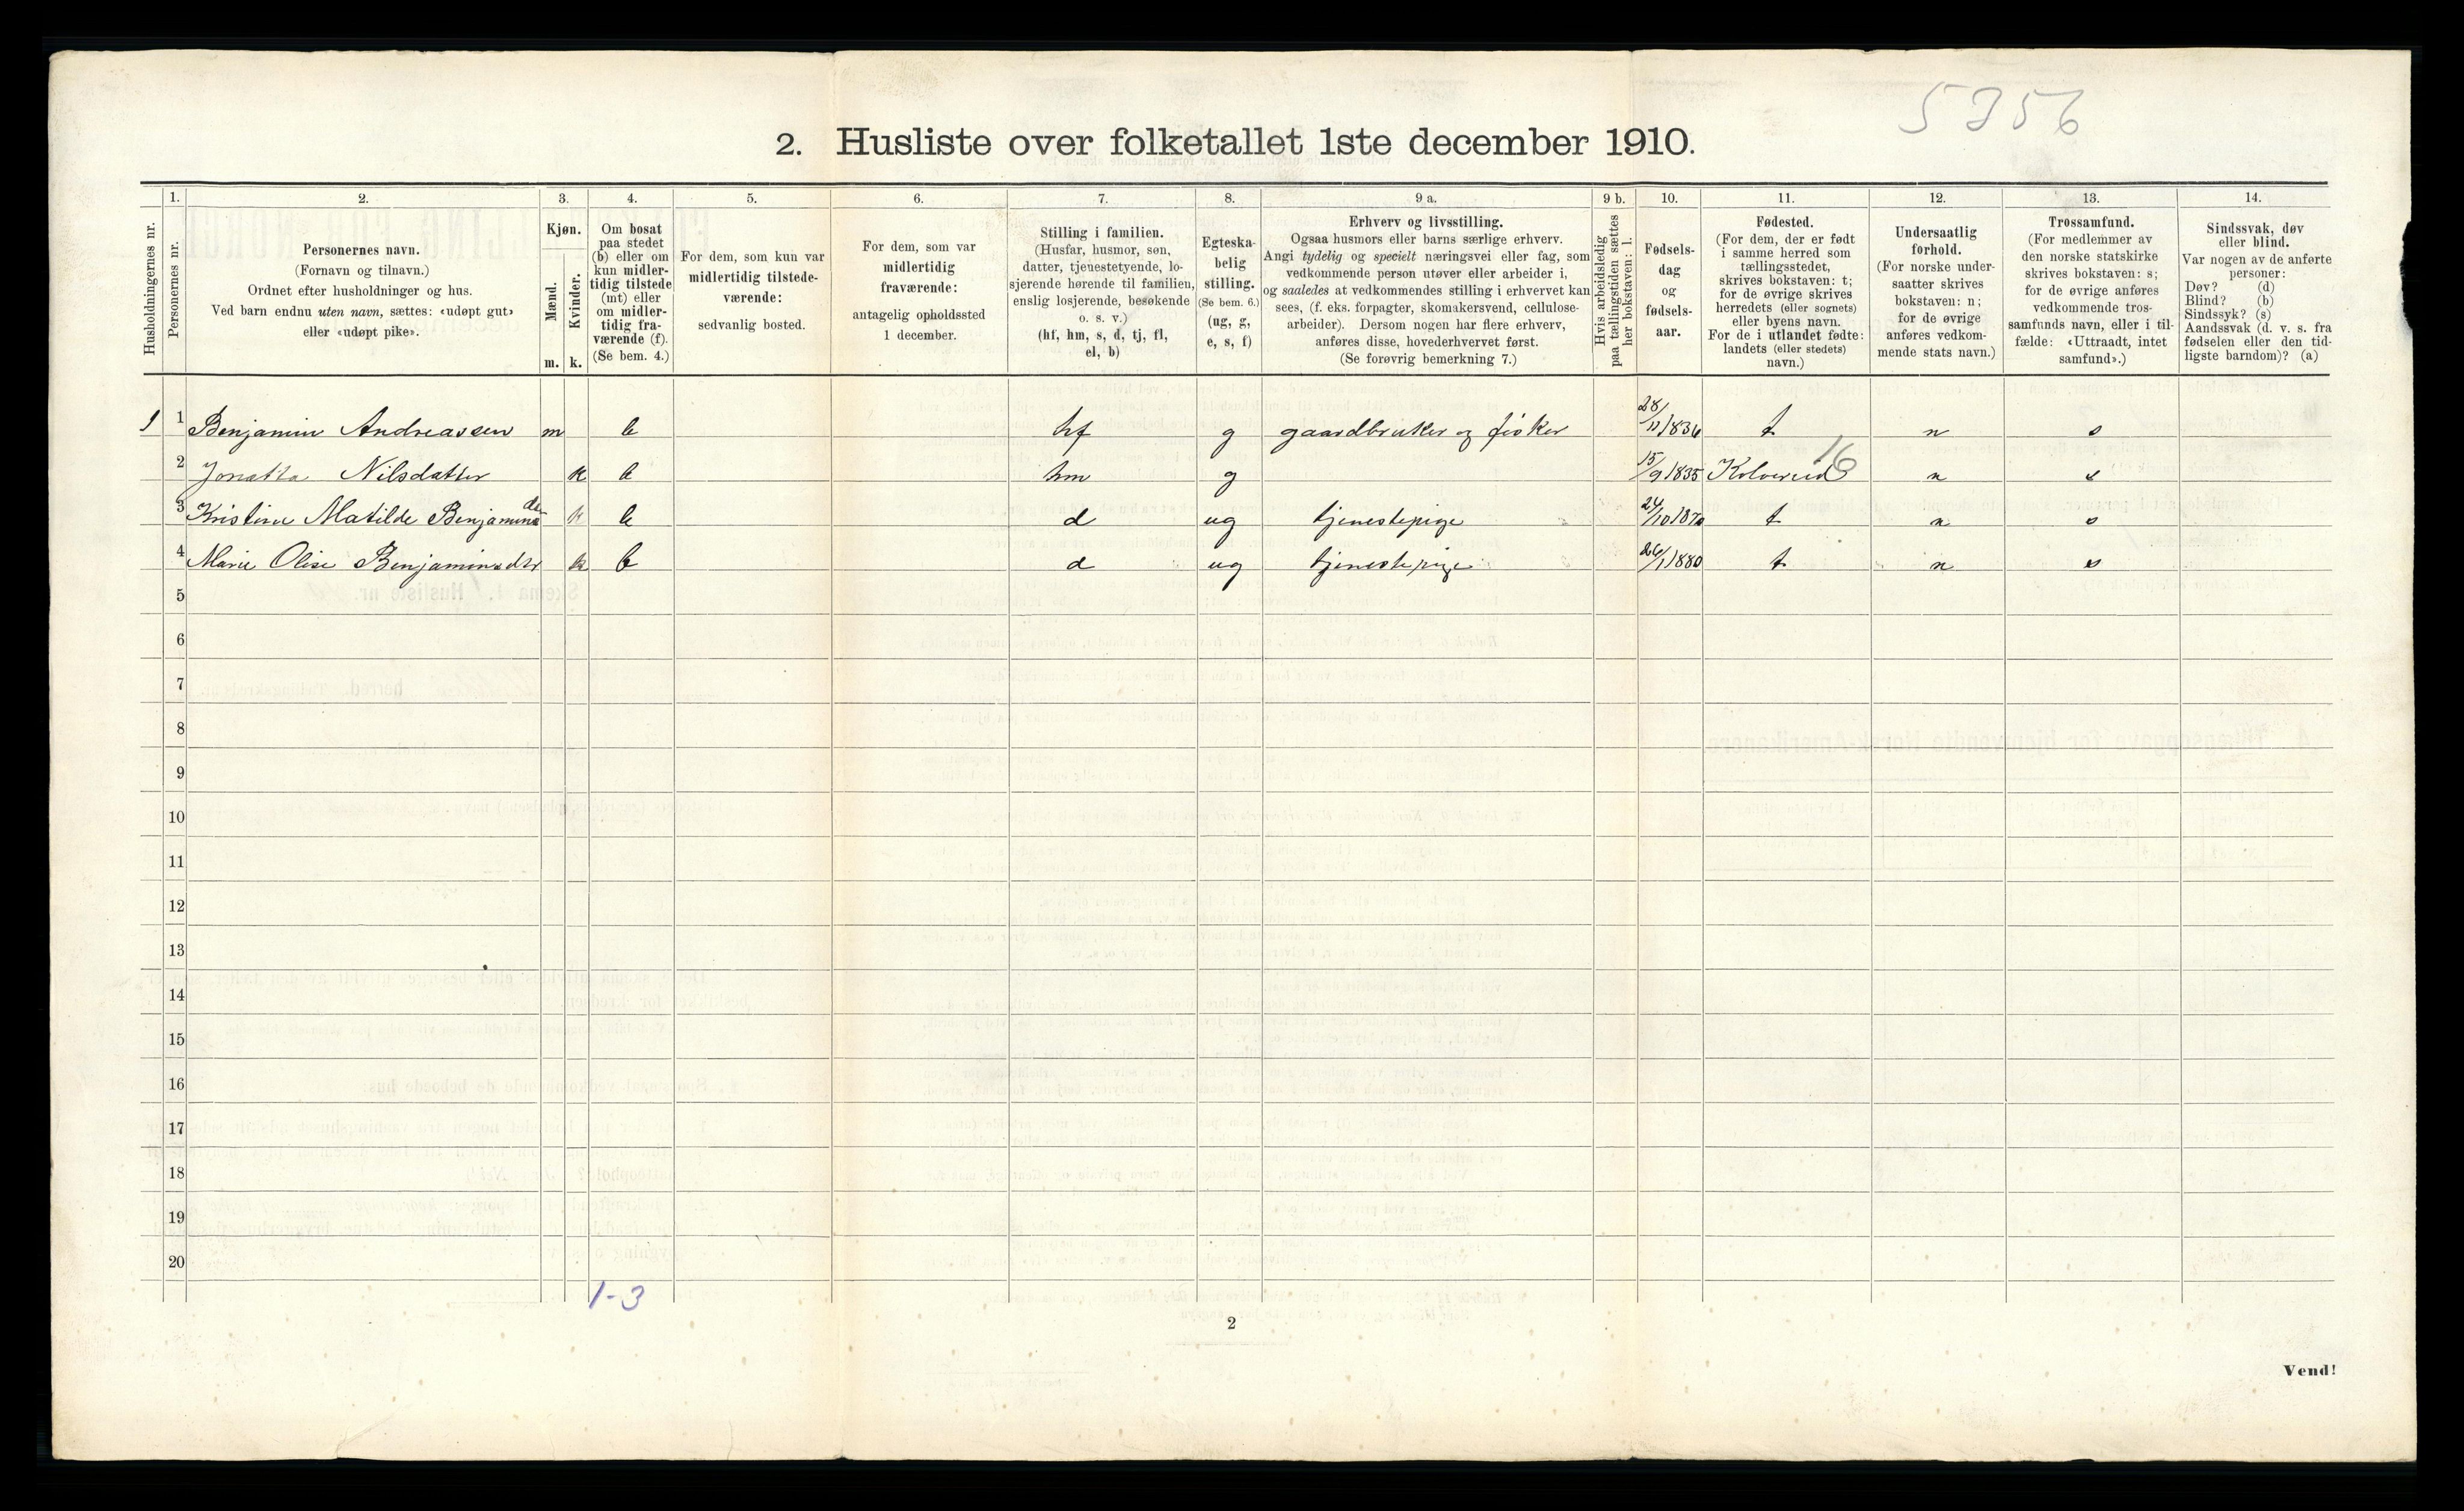 5356
2. Husliste over folketallet 1ste december 1910.
Husholdningernes nr.
1.
Personernes nr.
2.
Personernes navn.
(Fornavn og tilnavn.)
Ordnet efter husholdninger og hus.
Ved barn endnu uten navn, sættes: «udøpt gut»
eller «udøpt pike».
3.
Kjøn.
Mænd.
Kvinder.
m. k.
4.
Om bosat
paa stedet
(b) eller om
kun midler-
tidig tilstede
(mt) eller
om midler-
tidig fra-
værende (f).
(Se bem. 4.)
5.
For dem, som kun var
midlertidig tilstede-
værende:
sedvanlig bosted.
6.
For dem, som var
midlertidig
fraværende:
antagelig opholdssted
1 december.
7.
Stilling i familien.
(Husfar, husmor, søn,
datter, tjenestetyende, lo-
sjerende hørende til familien,
enslig losjerende, besøkende
o. s. v.)
(hf, hm, s, d, tj, fl,
el, b)
8.
Egteska-
belig
stilling.
(Se bem. 6.)
(ug, g,
e, s, f)
9 a.
Erhverv og livsstilling.
Ogsaa husmors eller barns særlige erhverv.
Angi tydelig og specielt næringsvei eller fag, som
vedkommende person utøver eller arbeider i,
og saaledes at vedkommendes stilling i erhvervet kan
sees, (f. eks. forpagter, skomakersvend, cellulose-
arbeider). Dersom nogen har flere erhverv,
anføres disse, hovederhvervet først.
(Se forøvrig bemerkning 7.)
9 b.
Hvis arbeidsledig
paa tællingstiden sættes
her bokstaven: l.
10.
Fødsels-
dag
og
fødsels-
aar.
11.
Fødested.
(For dem, der er født
i samme herred som
tællingsstedet,
skrives bokstaven: t;
for de øvrige skrives
herredets (eller sognets)
eller byens navn.
For de i utlandet fødte:
landets (eller stedets)
navn.)
12.
Undersaatlig
forhold.
(For norske under-
saatter skrives
bokstaven: n;
for de øvrige
anføres vedkom-
mende stats navn.)
13.
Trossamfund.
(For medlemmer av
den norske statskirke
skrives bokstaven: s;
for de øvrige anføres
vedkommende tros-
samfunds navn, eller i til-
fælde: «Uttraadt, intet
samfund».)
14.
Sindssvak, døv
eller blind.
Var nogen av de anførte
personer:
Døv? (d)
Blind? (b)
Sindssyk? (s)
Aandssvak (d. v. s. fra
fødselen eller den tid-
ligste barndom)? (a)
1 1 Benjamin Andreassen m b hf g gaardbruker og fisker 28/11 1836 t n s
2 Jonetta Nilsdatter k b hm g 15/9 1835 Kolvereid 16 n s
3 Kristine Matilde Benjaminsdtr k b d ug tjenestepige 24/10 1870 t n s
4 Marie Olise Benjaminsdtr k b d ug tjenestepige 26/1 1880 t n s
5
6
7
8
9
10
11
12
13
14
15
16
17
18
19
20
1-3
2
Vend!